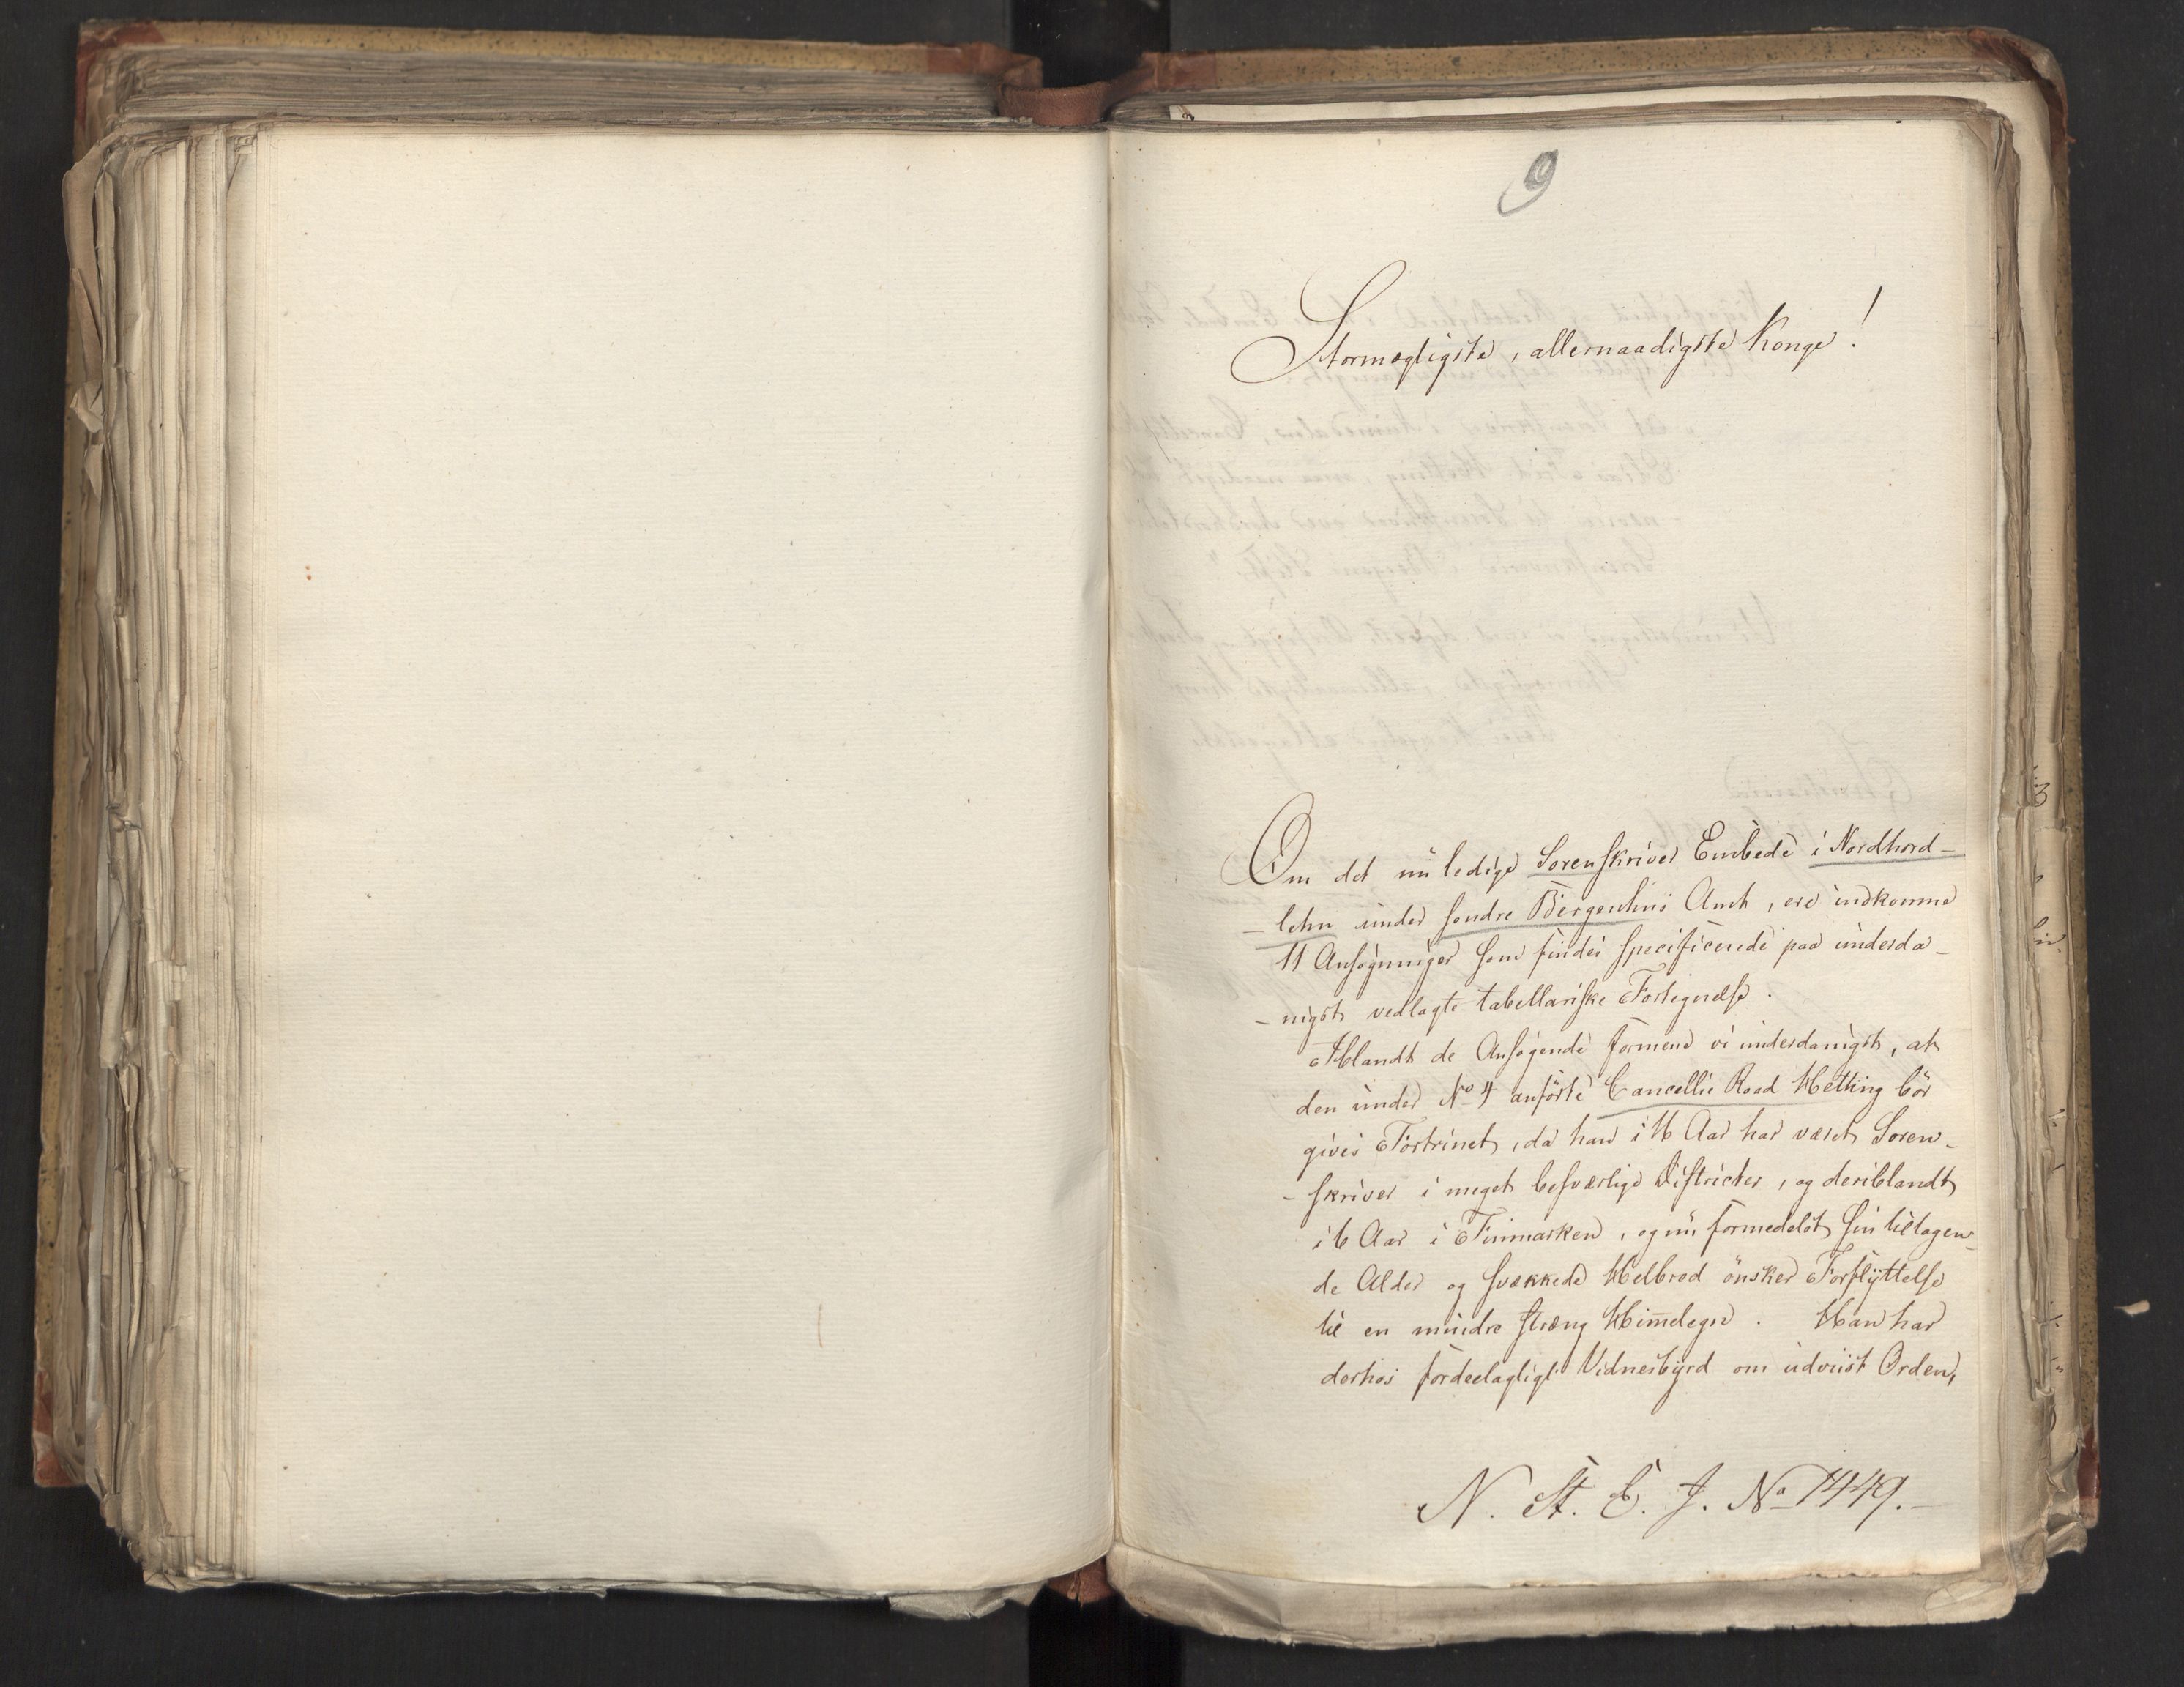 9
Stormægtigste, allernaadigste Konge!
Om det nu ledige Sorenskriver Embede i Nordhord-
-lehn under søndre Bergenhuus Amt, ere indkomne
11 Ansøgninger som findes specificerede paa underda-
-nigst vedlagte tabellariske Fortegnelse.
Iblandt de Ansøgende formene vi underdanigst, at
den under No 4 anførte Cancellie Raad Hetting bör
gives Fortrinet, da han i 16 Aar har været Soren-
-skriver i meget besværlige Districter, og deriblandt
i 6 Aar i Finmarken, og nu formedelst sin tiltagen-
de Alder og svækkede Helbred önsker Forflyttelse
til en mindre stræng Himelegn. Han har
derhos fordeelagtigt Vidnesbyrd om udviist Orden,
N. St. E. J. No 1449.-